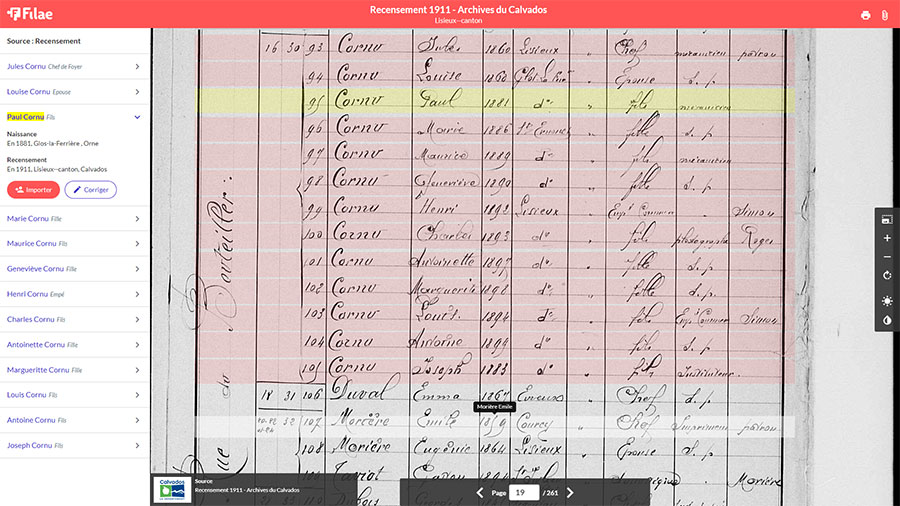 Filae
Recensement 1911 - Archives du Calvados
Lisieux--canton
Source : Recensement
Jules Cornu Chef de Foyer
Louise Cornu Epouse
Paul Cornu Fils
Naissance
En 1881, Glos-la-Ferrière , Orne
Recensement
En 1911, Lisieux--canton, Calvados
Importer
Corriger
Marie Cornu Fille
Maurice Cornu Fils
Geneviève Cornu Fille
Henri Cornu Empé
Charles Cornu Fils
Antoinette Cornu Fille
Margueritte Cornu Fille
Louis Cornu Fils
Antoine Cornu Fils
Joseph Cornu Fils
16 30 93 Cornu Jules 1860 Lisieux " Chef mécanicien patron
94 Cornu Louise 1860 " Epouse s. p
95 Cornu Paul 1881 d° " fils mécanicien
96 Cornu Marie 1886 " fille s. p
97 Cornu Maurice 1889 d° " fils mécanicien
98 Cornu Geneviève 1890 d° " fille s. p
99 Cornu Henri 1892 Lisieux " Simon
100 Cornu Charles 1893 d° " fils photographe Roger
101 Cornu Antoinette 1897 d° " fille s. p
102 Cornu Marguerite 1898 d° " fille s. p.
103 Cornu Louis 1894 d° " fils Simon
104 Cornu Antoine 1899 d° " fils s. p
105 Cornu Joseph 1883 d° " fils Instituteur
17 31 106 Duval Emma 1867 Evreux " Chef s. p
Morière Emile
32 107 Morière Emile 1859 Courcy " Chef Imprimeur patron
108 Morière Eugénie 1864 Lisieux " Epouse s. p
109 Morière
Rue du Bouteiller
Calvados
Source
Recensement 1911 - Archives du Calvados
Page 19 / 261